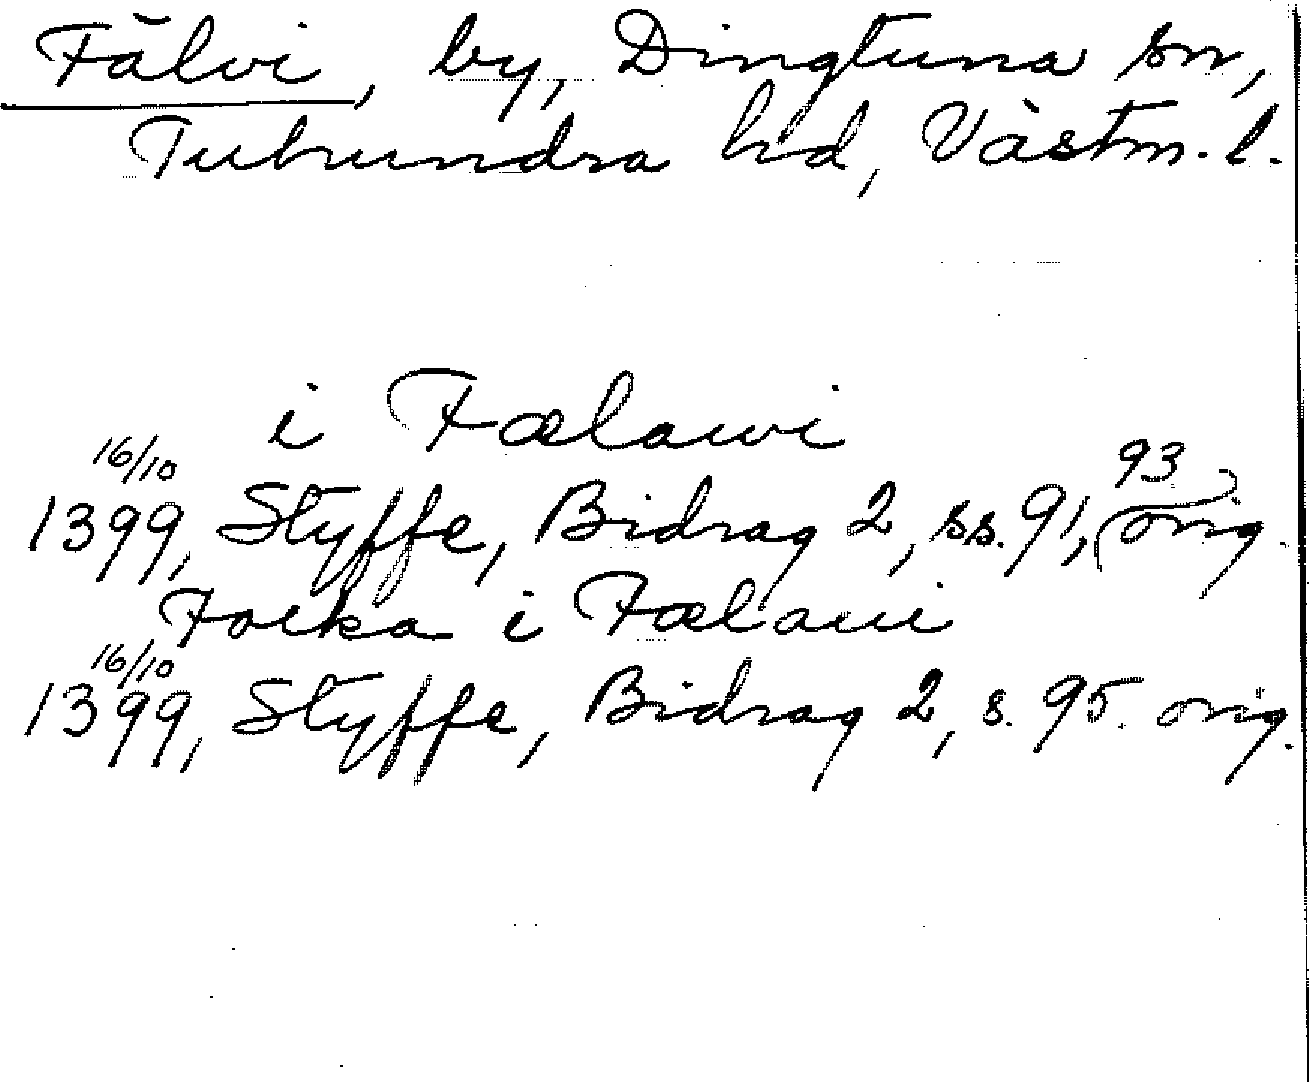 Fälvi, by, Dingtuna sn,
Tuhundra hd, Västm. l.
i Fælawi
16/10 93
1399, Styffe, Bidrag 2, ss. 91, orig.
i Fælaui
16/10
1399, Styffe, Bidrag 2, s. 95. orig.